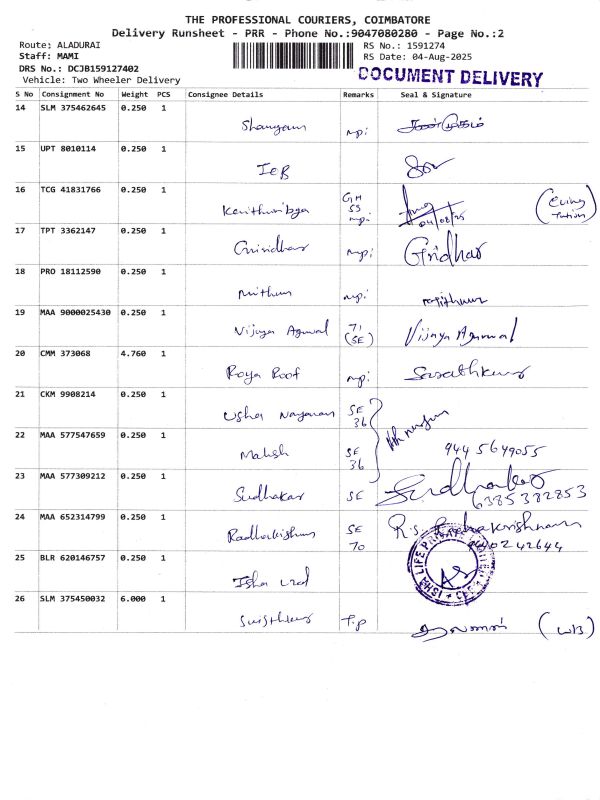 THE PROFESSIONAL COURIERS, COIMBATORE
Delivery Runsheet - PRR - Phone No.:9047080280 - Page No.:2
Route: ALADURAI
RS No.: 1591274
Staff: MAMI
RS Date: 04-Aug-2025
DRS No.: DCJB159127402
DOCUMENT DELIVERY
Vehicle: Two Wheeler Delivery
S No Consignment No Weight PCS Consignee Details Remarks Seal & Signature
14 SLM 375462645 0.250 1
mpi
15 UPT 8010114 0.250 1
IEB
16 TCG 41831766 0.250 1
GH
SS
mpi
04/08/25
17 TPT 3362147 0.250 1
mpi Gridhar
18 PRO 18112590 0.250 1
Mithun mpi
19 MAA 9000025430 0.250 1
Vijaya Agarwal 71 (SE) Vijaya Agarwal
20 CMM 373068 4.760 1
Roya Roof mpi
21 CKM 9908214 0.250 1
Usha Narayanan SE 36
22 MAA 577547659 0.250 1
Mahesh SE 36 944 5649055
23 MAA 577309212 0.250 1
Sudhakar SE Sudhakar 6385382853
24 MAA 652314799 0.250 1
Radhakrishnan SE 70 R.S. Radhakrishnan
25 BLR 620146757 0.250 1
Isha
26 SLM 375450032 6.000 1
T.P (WB)